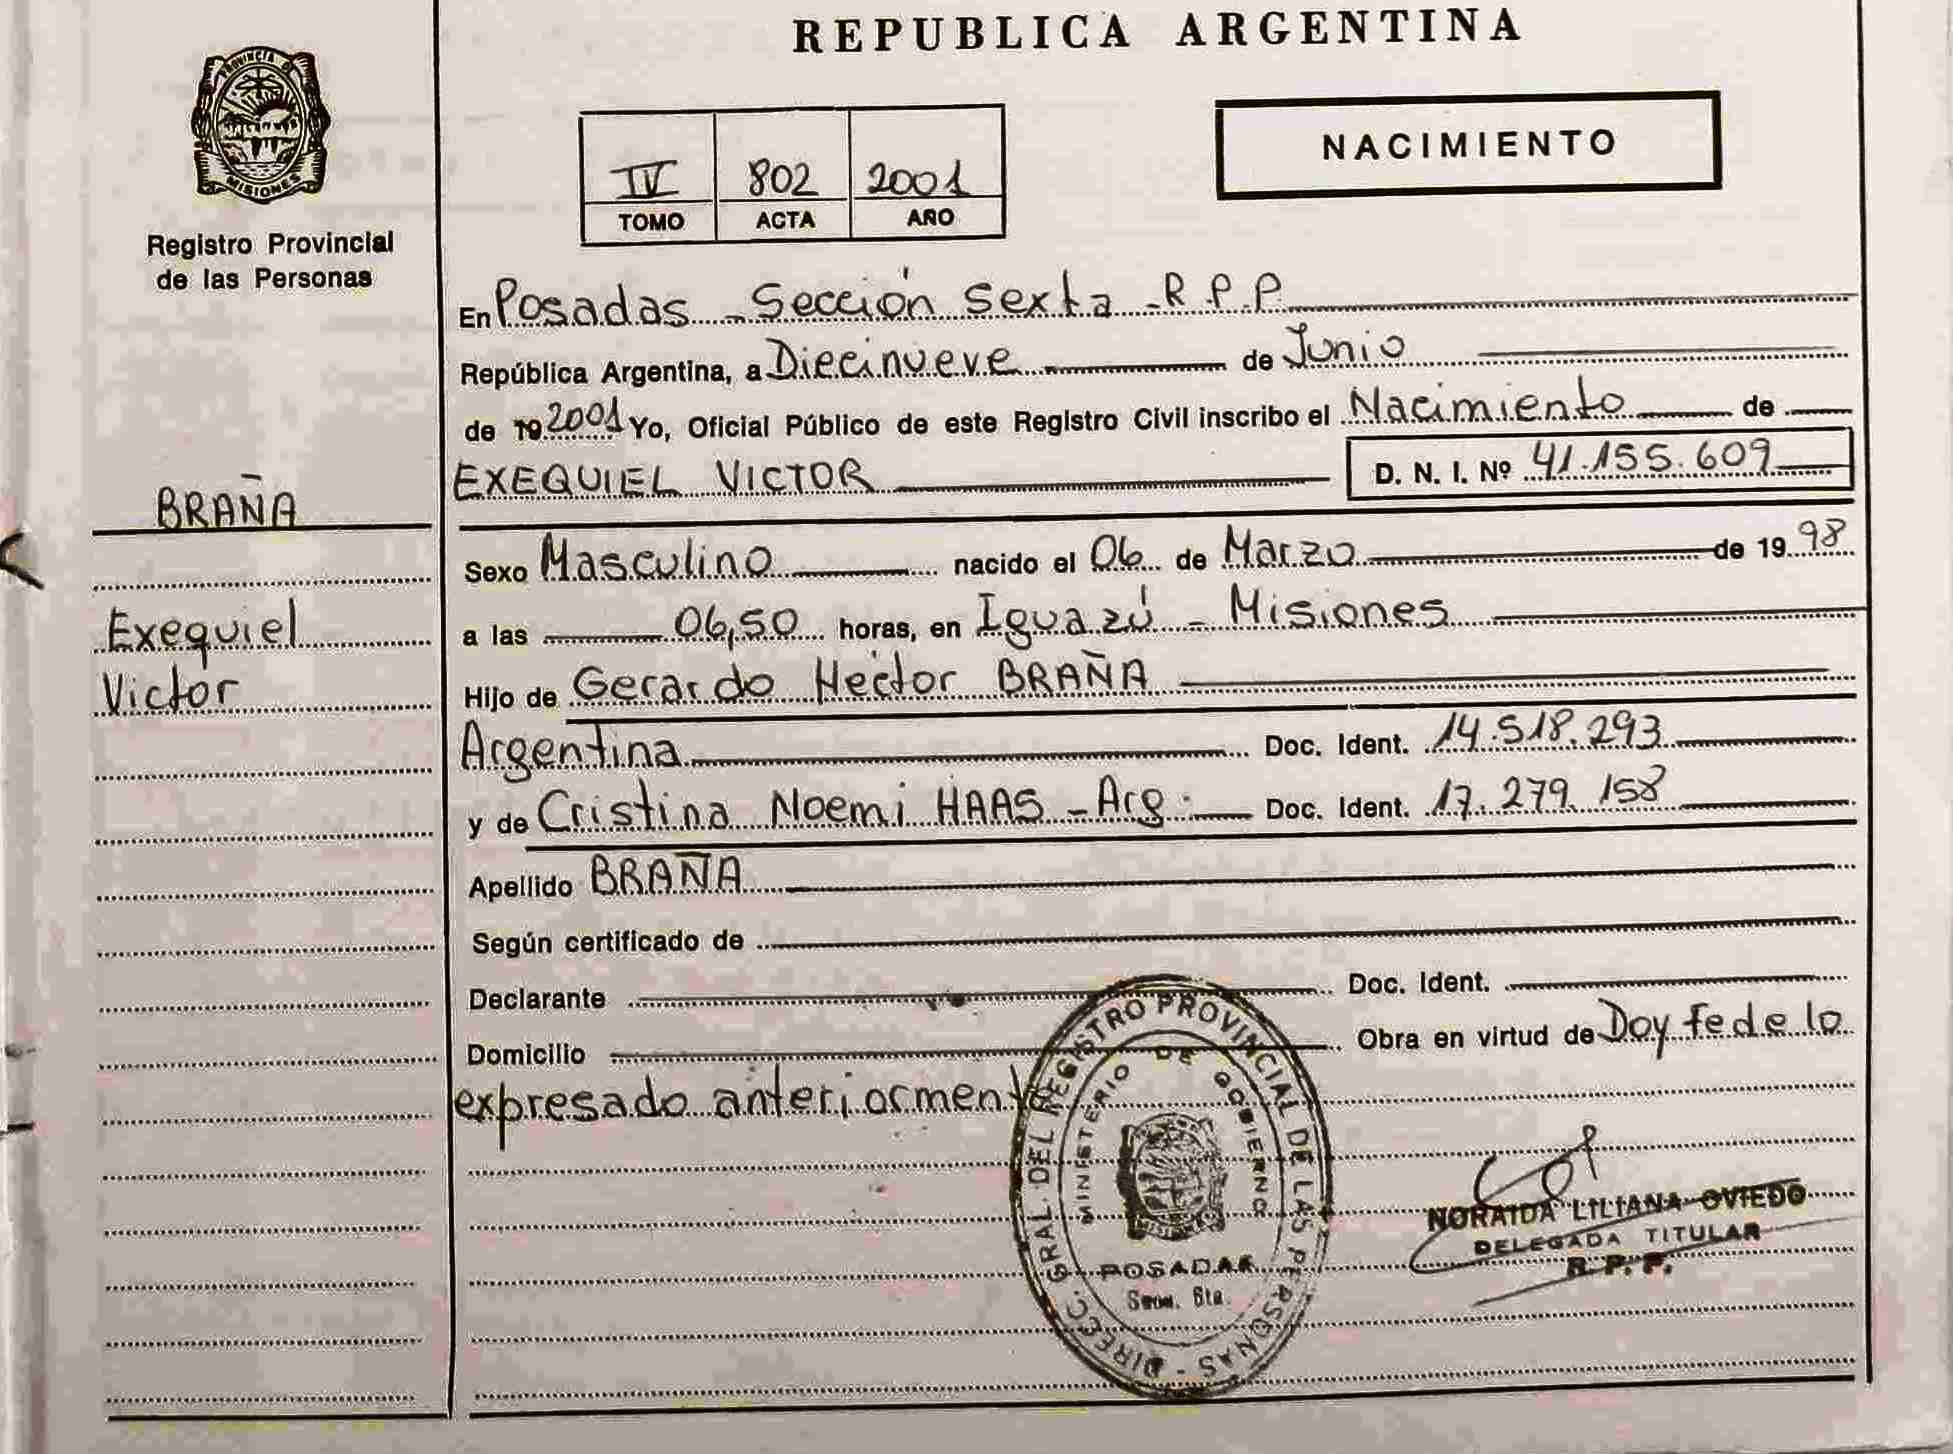 REPUBLICA ARGENTINA
PROVINCIA DE
MISIONES
Registro Provincial
de las Personas
NACIMIENTO
IV 802 2001
TOMO ACTA AÑO
En Posadas - Sección Sexta - R.P.P.
República Argentina, a Diecinueve de Junio
de 19 2001 Yo, Oficial Público de este Registro Civil inscribo el Nacimiento de
EXEQUIEL VICTOR D. N. I. Nº 41.155.609
BRAÑA
Exequiel
Victor
Sexo Masculino nacido el 06 de Marzo de 19 98
a las 06,50 horas, en Iguazú - Misiones
Hijo de Gerardo Hector BRAÑA
Argentina Doc. Ident. 14.518.293
y de Cristina Noemi HAAS - Arg. Doc. Ident. 17.279.158
Apellido BRAÑA
Según certificado de
Declarante Doc. Ident.
Domicilio Obra en virtud de Doy fe de lo
expresado anteriormente
DIRECC. GRAL. DEL REGISTRO PROVINCIAL DE LAS PERSONAS -
MINISTERIO DE GOBIERNO
POSADAS
Secc. 6ta.
NORAIDA LILIANA OVIEDO
DELEGADA TITULAR
R. P. P.